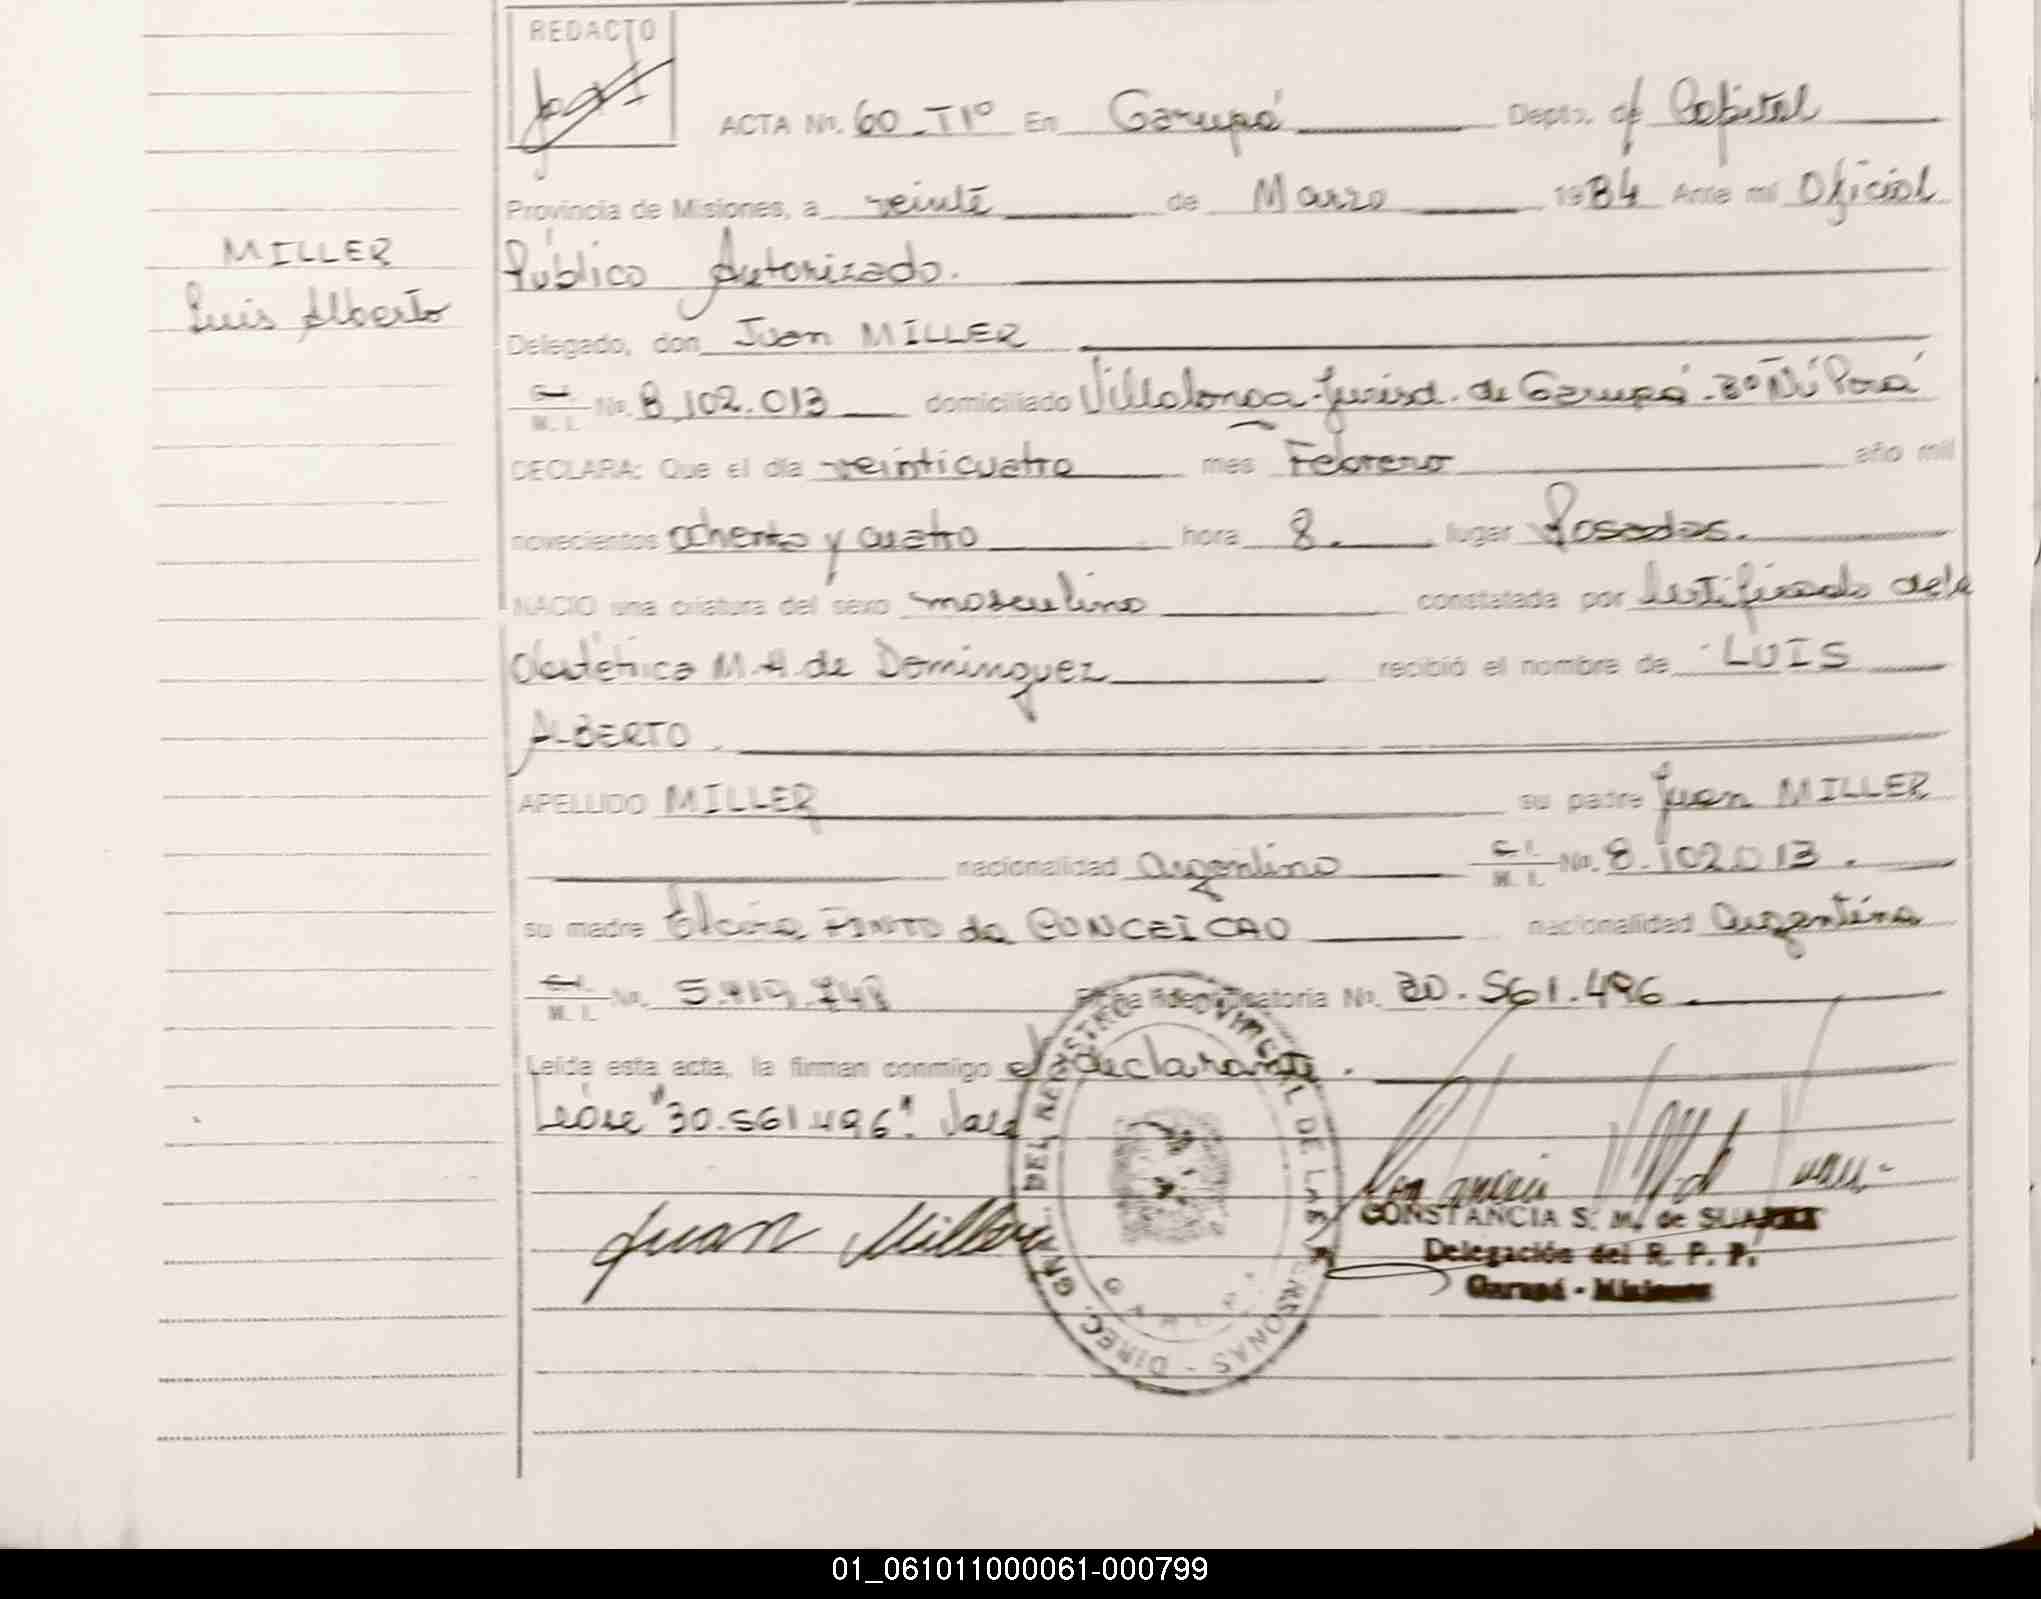 REDACTO
ACTA No. 60 - T1º En Garupá Depto. de Capital
Provincia de Misiones, a veinte de Marzo 1984 Ante mi Oficial
MILLER
Público Autorizado.
Luis Alberto
Delegado, don Juan MILLER
C.I. M.I. No. 8.102.013 domiciliado Villalonga - Jurisd. de Garupá - Bº Ñú Porá
DECLARA: Que el día veinticuatro mes Febrero año mil
novecientos ochenta y cuatro hora 8. lugar Posadas.
NACIO una criatura del sexo masculino constatada por Certificado de la
Obstétrica M.A. de Dominguez recibió el nombre de LUIS
ALBERTO
APELLIDO MILLER su padre Juan MILLER
nacionalidad Argentino C.I. M.I. No. 8.102.013.
su madre PINTO da CONCEICAO nacionalidad Argentina
C.I. M.I. No. Ficha Identificatoria No. 30.561.496
Leída esta acta, la firman conmigo el declarante.
Léase "30.561.496". Vale
Juan Miller
DIREC. GRAL. DEL REGISTRO PROVINCIAL DE LAS PERSONAS
CONSTANCIA S. M. de SUAREZ
Delegación del R. P. P.
Garupá - Misiones
01_061011000061-000799